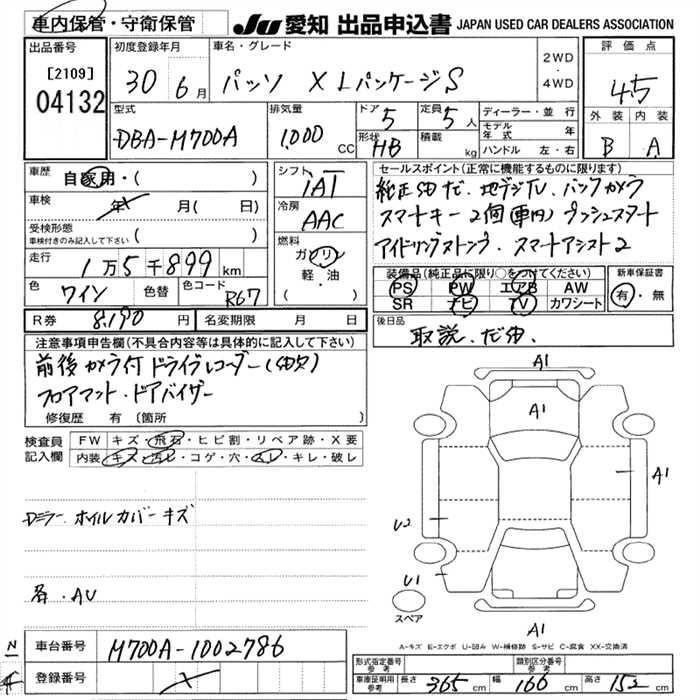 車内保管・守衛保管
JU 愛知 出品申込書 JAPAN USED CAR DEALERS ASSOCIATION
出品番号
[2109]
04132
初度登録年月
30 6月
車名・グレード
パッソ X Lパッケージ S
2WD
・
4WD
評価点
4.5
外装 内装
B A
型式
DBA-M700A
排気量
1,000 CC
ドア 5
形状 HB
定員 5人
積載 kg
ディーラー・並行
モデル年式 年
ハンドル 左・右
車歴
自家用・( )
車検
年 月(日)
受検形態
車検付きのみ記入して下さい ( )
走行
1万5千899km
色
ワイン
色替
色コード
R67
シフト
IAT
冷房
AAC
燃料
ガソリン
軽・油
( )
セールスポイント(正常に機能するものに限ります)
純正SDナビ、地デジTV、バックカメラ
スマートキー2個(車内) プッシュスタート
アイドリングストップ、スマートアシスト2
装備品(純正品に限り○をつけてください)
PS PW エアB AW
SR ナビ TV カワシート
新車保証書
有・無
R券 8,190円
名変期限 月 日
後日品
取説、ナビ
注意事項申告欄(不具合内容等は具体的に記入して下さい)
前後カメラ付ドライブレコーダー
フロアマット・ドアバイザー
修復歴 有(箇所 )
検査員記入欄
FW キズ・飛石・ヒビ割・リペア跡・X要
内装 キズ・汚レ・コゲ・穴・スレ・キレ・破レ
Dミラー ホイルカバーキズ
各・AU
A1
A1
A1
U2
U1
スペア
A1
A-キズ E-エクボ U-凹み W-補修跡 S-サビ C-腐食 XX-交換済
N
車台番号 M700A-1002786
登録番号
形式指定番号 参考
類別区分番号 参考
車庫証明用 参考 長さ 365cm 幅 166cm 高さ 152cm